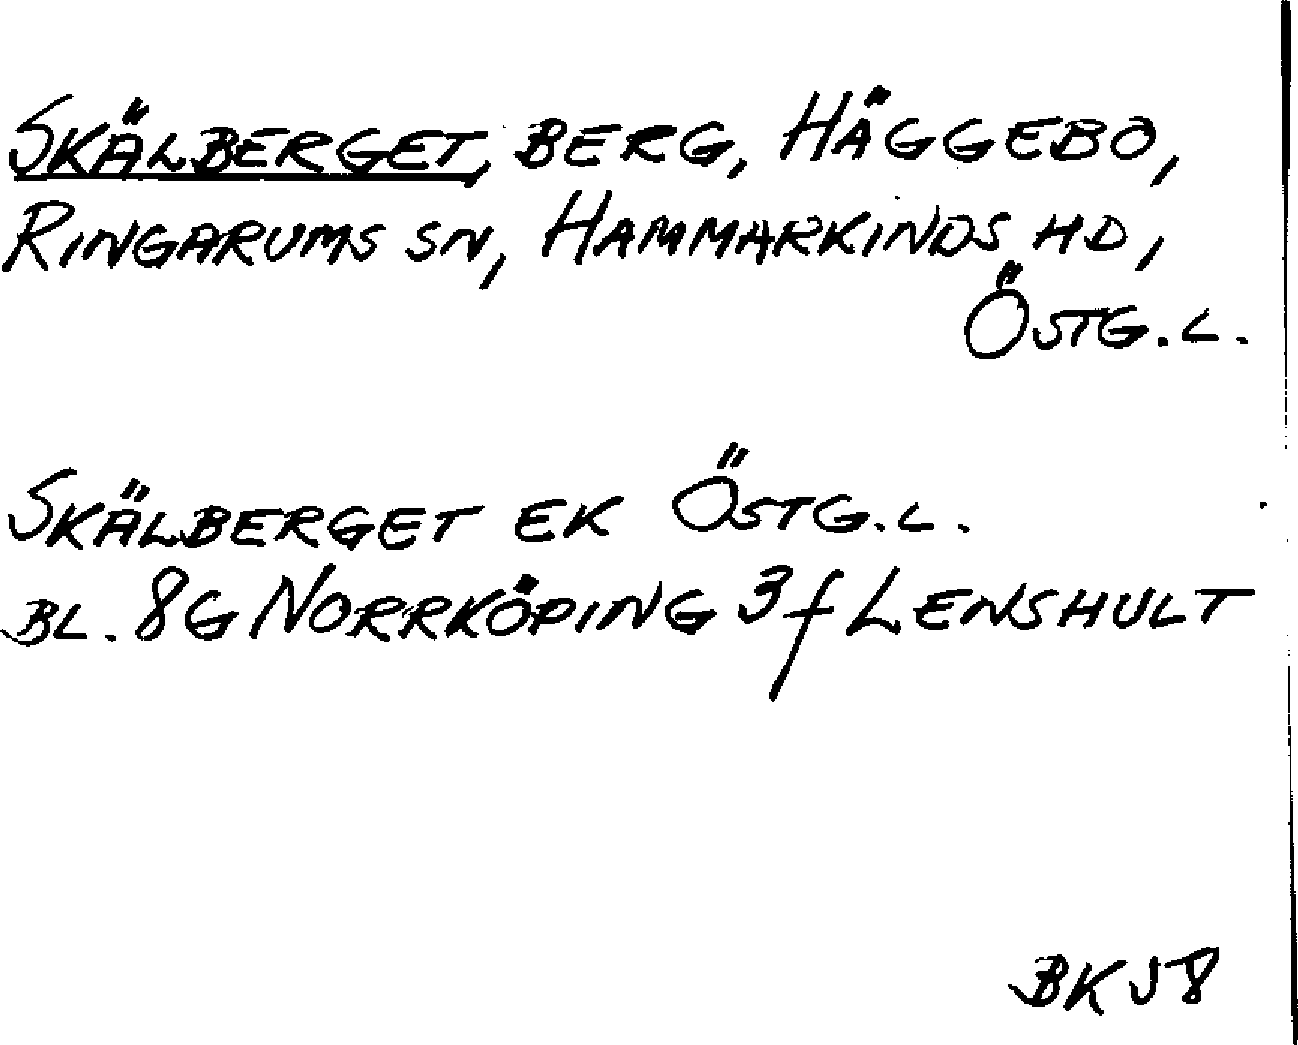 SKÄLBERGET, BERG, HÄGGEBO,
RINGARUMS SN, HAMMARKINDS HD,
ÖSTG.L.
SKÄLBERGET EK ÖSTG.L.
BL. 8G NORRKÖPING 3f LENSHULT
BK58